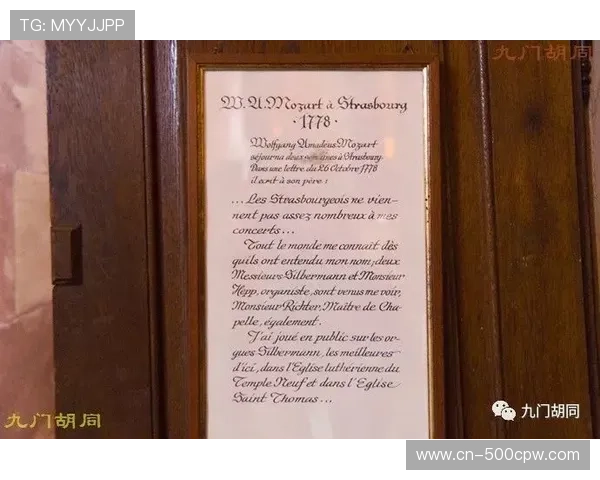 TG: MYYJJPP
九门胡同
W. A. Mozart à Strasbourg
· 1778 ·
Wolfgang Amadeus Mozart
séjourna deux semaines à Strasbourg
Dans une lettre du 26 Octobre 1778
il ecrit à son père :
... Les Strasbourgeois ne vien-
nent pas assez nombreux à mes
concerts ...
Tout le monde me connaît dès
quils ont entendu mon nom; deux
Messieurs Silbermann et Monsieur
Hepp, organiste, sont venus me voir,
Monsieur Richter, Maître de Cha-
pelle, également.
J'ai joué en public sur les or-
gues Silbermann, les meilleures
d'ici, dans l'Eglise luthérienne du
Temple Neuf et dans l'Eglise
Saint Thomas ...
九门胡同
九门胡同
www.cn-500cpw.com